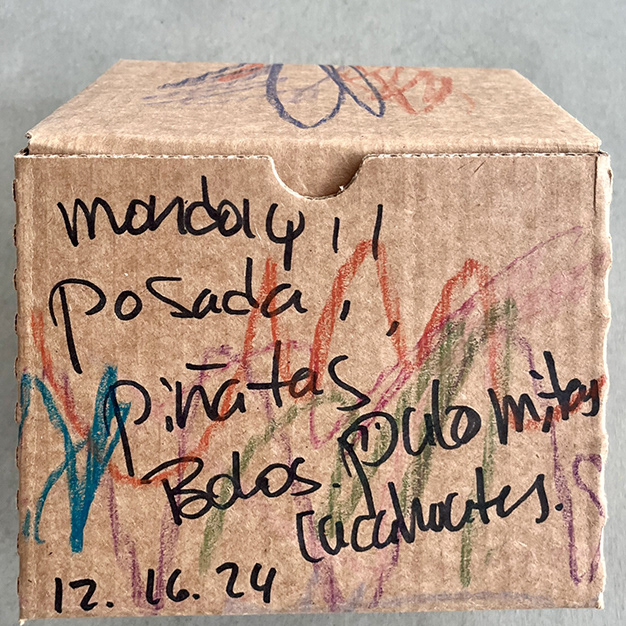 monday,,
posada,,
piñatas
Bolos. palomitas
cacahuates.
12. 16. 24